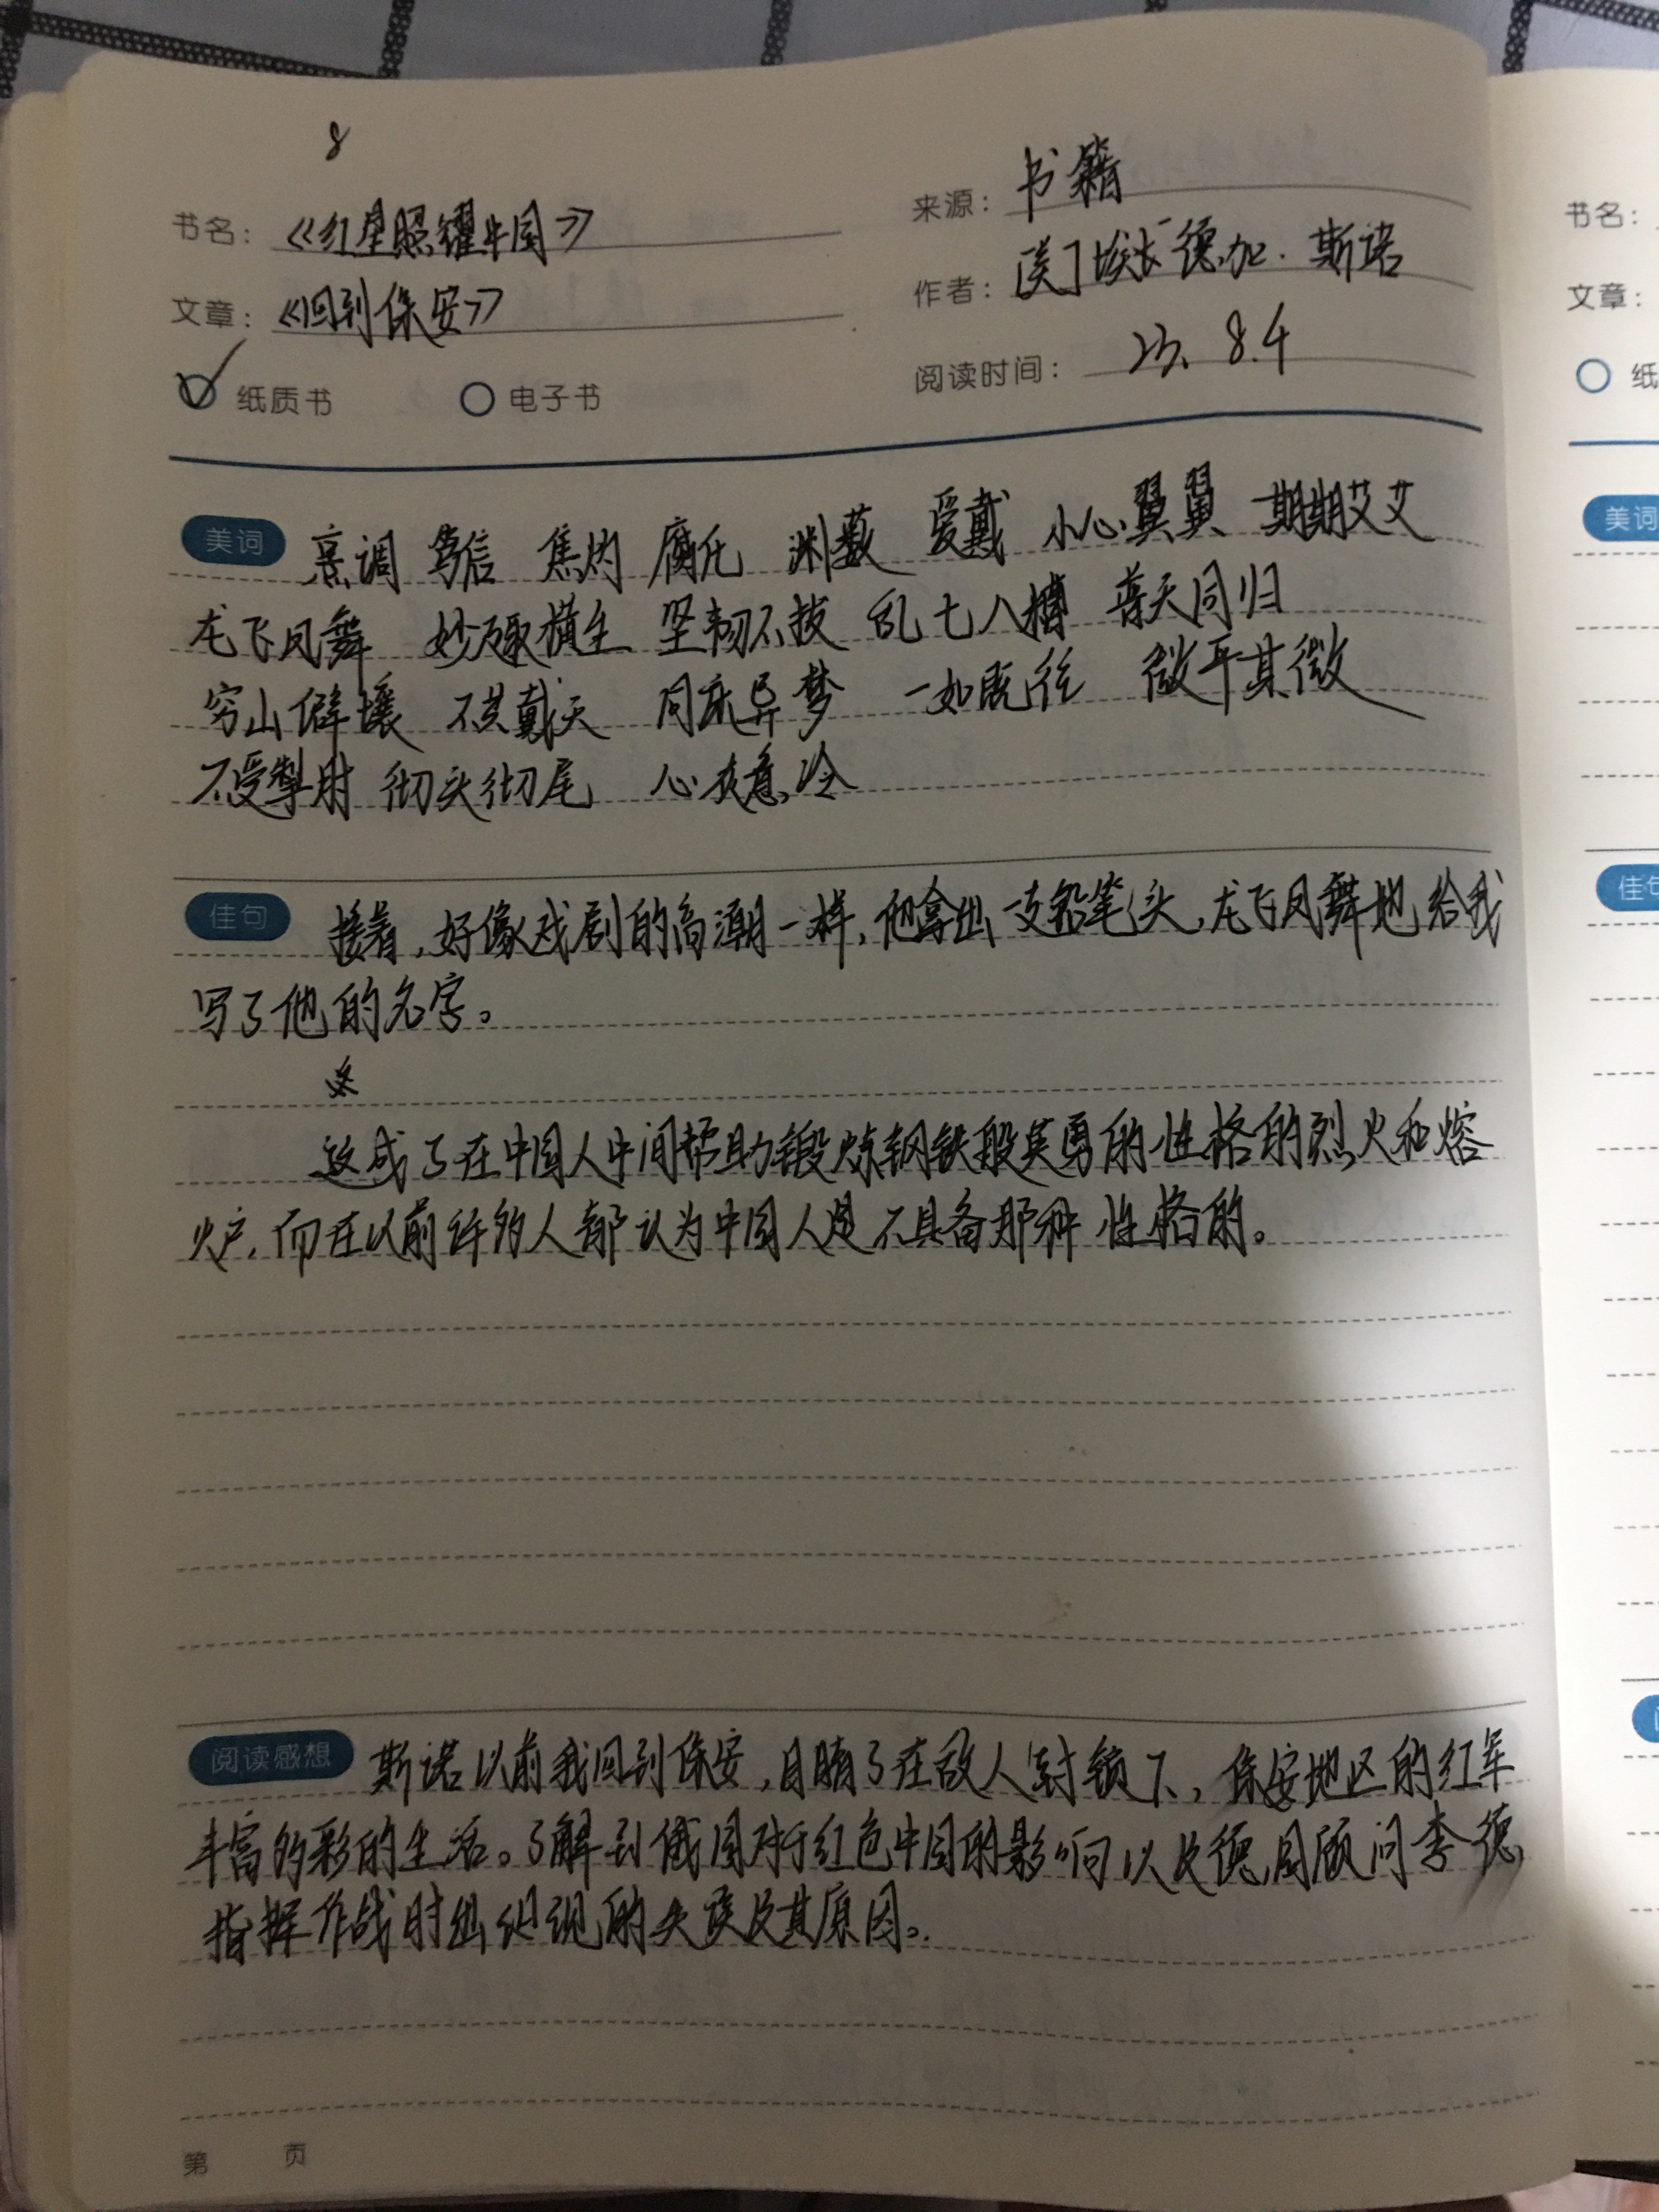 8
书名：《红星照耀中国》
来源：书籍
文章：《回到保安》
作者：[美]埃德加·斯诺
纸质书 电子书
阅读时间：23. 8.4
美词 烹调 笃信 焦灼 腐化 渊薮 爱戴 小心翼翼 期期艾艾
龙飞凤舞 妙趣横生 坚韧不拔 乱七八糟 普天同归
穷山僻壤 不共戴天 同床异梦 一如既往 微乎其微
不受掣肘 彻头彻尾 心灰意冷
佳句 接着，好像戏剧的高潮一样，他拿出一支铅笔头，龙飞凤舞地给我
写了他的名字。
这成了在中国人中间帮助锻炼钢铁般英勇的性格的烈火和熔
炉，而在以前许多人都认为中国人是不具备那种性格的。
阅读感想 斯诺以前我回到保安，目睹了在敌人封锁下，保安地区的红军
丰富多彩的生活。了解到俄国对于红色中国的影响以及德国顾问李德
指挥作战时出现的失误及其原因。
第 页
书名：
文章：
纸
美词
佳句